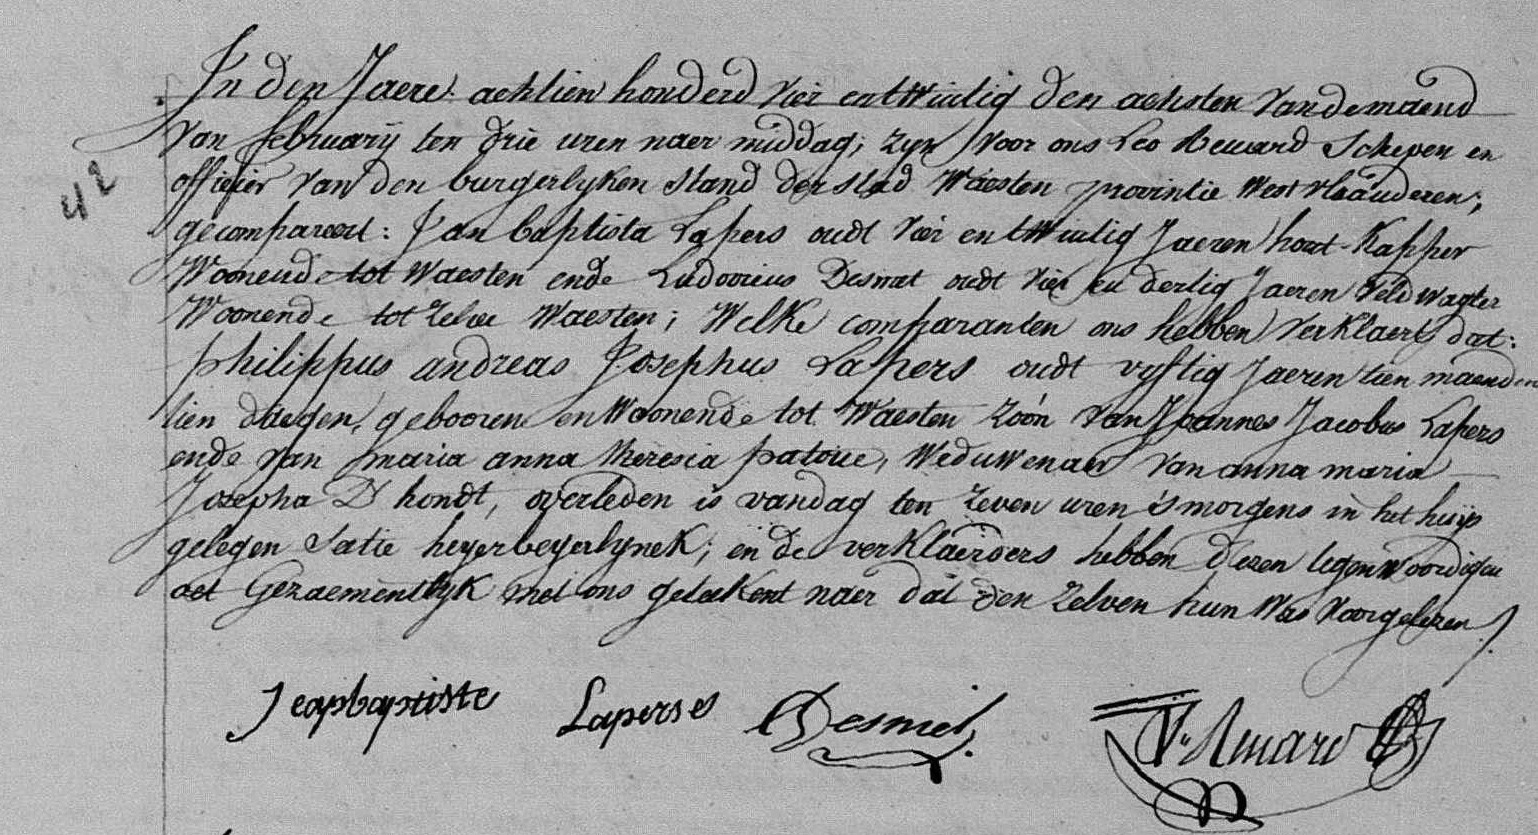 In den Jaere achtien honderd vier entwintig den achsten van de maend
42
van februarij ten drie uren naer middag; zyn voor ons Leo Renard Schepen en
officier van den burgerlyken stand der stad Waesten provintie west vlaanderen;
gecompareert: Jan baptista Lapers oudt vier entwintig Jaeren hout-Kapper
Woonende tot Waesten ende Ludovicus Desmet oudt vier en dertig Jaeren veldwagter
Woonende tot zelve Waesten; Welke comparanten ons hebben verklaert dat:
philippus andreas Josephus Lapers oudt vyftig Jaeren tien maenden
tien daegen, gebooren en Woonende tot Waesten zoón van Joannes Jacobus Lapers
ende van maria anna theresia patoue, Weduwenaer van anna maria
Josepha D'hondt, overleden is vandag ten zeven uren 's morgens in het huijs
gelegen heyerbeyerlynck; en de verklaerders hebben dezen tegenwoordigen
act Gezaementlyk met ons geteekent naer dat den zelven hun Was voorgelezen ./.
Jeapbaptiste Laperses Desmet Renard